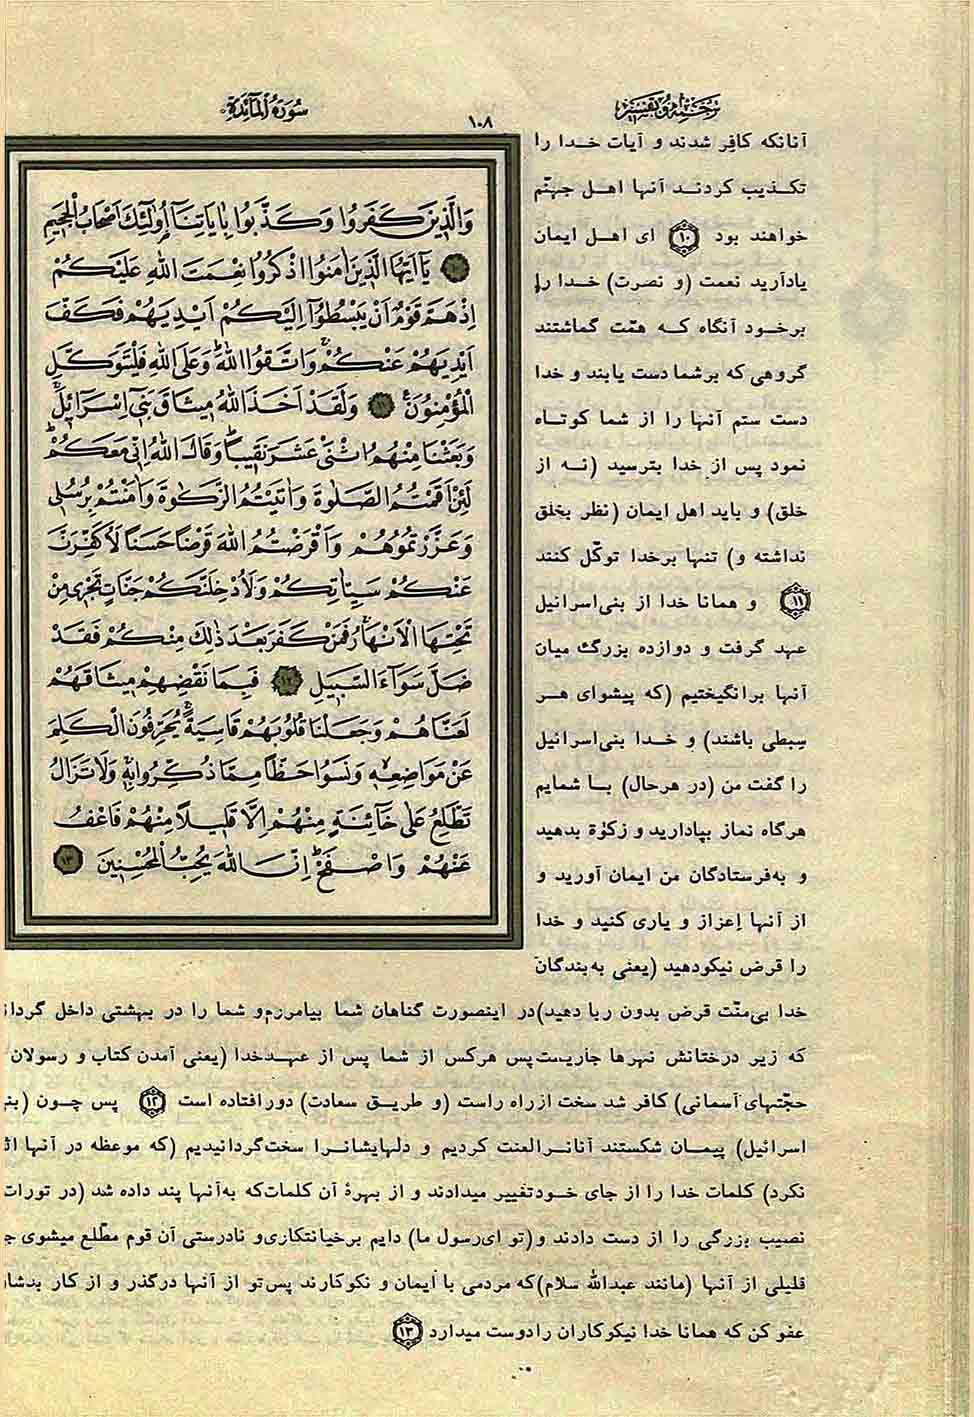 ترجمه و تفسیر
۱۰۸
سُورَةُ الْمَآئِدَة
وَالَّذِينَ كَفَرُوا وَكَذَّبُوا بِايَاتِنَآ اُولٰٓئِكَ اَصْحَابُ الْجَحِيمِ
۱۰ يَآ اَيُّهَا الَّذِينَ امَنُوا اذْكُرُوا نِعْمَتَ اللهِ عَلَيْكُمْ
اِذْ هَمَّ قَوْمٌ اَنْ يَبْسُطُوٓا اِلَيْكُمْ اَيْدِيَهُمْ فَكَفَّ
اَيْدِيَهُمْ عَنْكُمْ وَاتَّقُوا اللهَ وَعَلَى اللهِ فَلْيَتَوَكَّلِ
الْمُؤْمِنُونَ ۱۱ وَلَقَدْ اَخَذَ اللهُ مِيثَاقَ بَنِىٓ اِسْرَآئِيلَ
وَبَعَثْنَا مِنْهُمُ اثْنَىْ عَشَرَ نَقِيباً وَقَالَ اللهُ اِنِّى مَعَكُمْ
لَئِنْ اَقَمْتُمُ الصَّلٰوةَ وَاتَيْتُمُ الزَّكٰوةَ وَامَنْتُمْ بِرُسُلِى
وَعَزَّرْتُمُوهُمْ وَاَقْرَضْتُمُ اللهَ قَرْضاً حَسَناً لَاُكَفِّرَنَّ
عَنْكُمْ سَيِّاتِكُمْ وَلَاُدْخِلَنَّكُمْ جَنَّاتٍ تَجْرِى مِنْ
تَحْتِهَا الْاَنْهَارُ فَمَنْ كَفَرَ بَعْدَ ذٰلِكَ مِنْكُمْ فَقَدْ
ضَلَّ سَوَآءَ السَّبِيلِ ۱۲ فَبِمَا نَقْضِهِمْ مِيثَاقَهُمْ
لَعَنَّاهُمْ وَجَعَلْنَا قُلُوبَهُمْ قَاسِيَةً يُحَرِّفُونَ الْكَلِمَ
عَنْ مَوَاضِعِهِ وَنَسُوا حَظّاً مِمَّا ذُكِّرُوا بِهِ وَلَا تَزَالُ
تَطَّلِعُ عَلٰى خَآئِنَةٍ مِنْهُمْ اِلَّا قَلِيلاً مِنْهُمْ فَاعْفُ
عَنْهُمْ وَاصْفَحْ اِنَّ اللهَ يُحِبُّ الْمُحْسِنِينَ ۱۳
آنانکه کافِر شدند و آیات خدا را
تکذیب کردند آنها اهل جهنّم
خواهند بود ۱۰ ای اهل ایمان
یادآرید نعمت (و نصرت) خدا را
برخود آنگاه که همّت گماشتند
گروهی که برشما دست یابند و خدا
دست ستم آنها را از شما کوتاه
نمود پس از خدا بترسید (نه از
خلق) و باید اهل ایمان (نظر بخلق
نداشته و) تنها برخدا توکّل کنند
۱۱ و همانا خدا از بنی‌اسرائیل
عهد گرفت و دوازده بزرگ میان
آنها برانگیختیم (که پیشوای هر
سِبطی باشند) و خدا بنی‌اسرائیل
را گفت من (در هرحال) با شمایم
هرگاه نماز بپادارید و زکوٰة بدهید
و به‌فرستادگان من ایمان آورید و
از آنها اِعزاز و یاری کنید و خدا
را قرض نیکودهید (یعنی به‌بندگان
خدا بی‌منّت قرض بدون ربا دهید)در اینصورت گناهان شما بیامرزم‌و شما را در بهشتی داخل گردا
که زیر درختانش نهرها جاریست‌پس هرکس از شما پس از عهدخدا (یعنی آمدن کتاب و رسولان
حجّتهای آسمانی) کافر شد سخت ازراه راست (و طریق سعادت) دورافتاده است ۱۲ پس چون (بنی
اسرائیل) پیمان شکستند آنانرالعنت کردیم و دلهایشانرا سخت‌گردانیدیم (که موعظه در آنها اث
نکرد) کلمات خدا را از جای خودتغییر میدادند و از بهرهٔ آن کلمات‌که به‌آنها پند داده شد (در تورات
نصیب بزرگی را از دست دادند و(تو ای‌رسول ما) دایم برخیانتکاری‌و نادرستی آن قوم مطّلع میشوی ج
قلیلی از آنها (مانند عبدالله سلام)که مردمی با ایمان و نکوکارند پس‌تو از آنها درگذر و از کار بدشا
عفو کن که همانا خدا نیکوکاران رادوست میدارد ۱۳